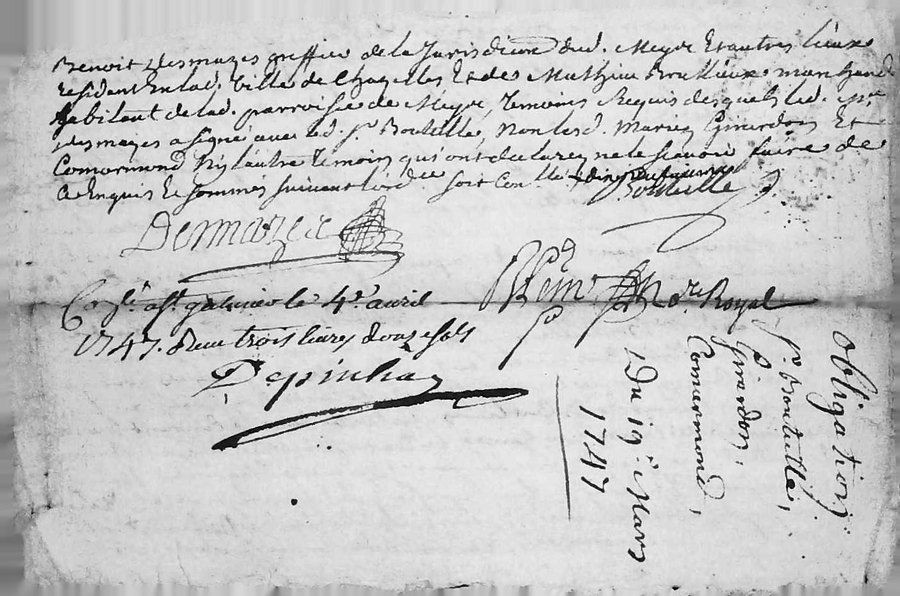 Benoit Desmazes greffier de la Jurisdiction dud. Meys Et autres lieux
residant En lad. ville de Chazelles Et de Mathieu Boullieux marchand
habitant de lad. parroisse de Meys, Temoins Requis desquels led. Sr
Desmazes a signé avec led. Sr Bouteille, Non lesd. Mariez Girardon Et
Comarmond Ny l'autre Temoin qui ont declarez ne le scavoir faire de
Ce Enquis Et sommés suivant l'ord.ce soit Con.llé
Bouteille
Desmazes
Con.lé a St galmier le 4e avril
1747. Reçu trois livres douze sols
Depinhac
Nore. Royal
Obligation
Sr Bouteille,
Girardon,
Comarmond,
Du 19e Mars
1747